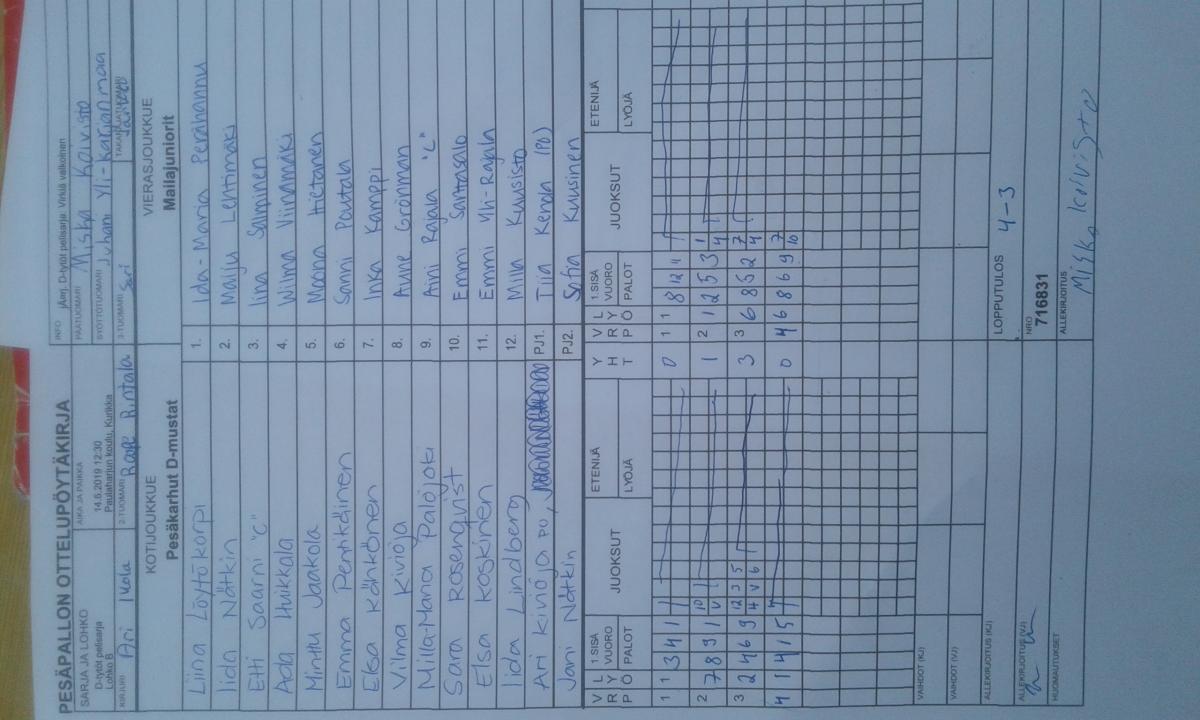 PESÄPALLON OTTELUPÖYTÄKIRJA
SARJA JA LOHKO
D-tytöt pelisarja
Lohko B
AIKA JA PAIKKA
14.6.2019 12:30
Paulaharjun koulu, Kurikka
INFO jAmj. D-tytöt pelisarja. Virkiä valkoinen
PÄÄTUOMARI Miska Koivisto
SYÖTTÖTUOMARI Juhani Yli-Karjanmaa
KIRJURI Ari Ikola
2-TUOMARI Roope Rintala
3-TUOMARI Sari
KOTIJOUKKUE
Pesäkarhut D-mustat
VIERASJOUKKUE
Mailajuniorit
Liina Löytökorpi 1. Ida-Maria Perähannu
Iida Nätkin 2. Maiju Lehtimäki
Etti Saarni "C" 3. Iina Salminen
Ada Huikkala 4. Wilma Viinamäki
Minttu Jaakola 5. Moona Hietanen
Emma Penttidinen 6. Sanni Poutala
Elsa Kähkönen 7. Inka Kamppi
Vilma Kivioja 8. Aune Grönman
Milla-Maria Palojoki 9. Aini Rajala "C"
Sara Rosenqvist 10. Emmi Santasalo
Elsa Koskinen 11. Emmi Yli-Rajala
Iida Lindberg 12. Milla Kuusisto
Ari Kivioja PU, PJ1. Tiia Kenola (PU)
Jani Nätkin PJ2. Sofia Kuusinen
V R P L Y Ö 1.SISÄ VUORO PALOT JUOKSUT ETENIJÄ LYÖJÄ Y H T V R P L Y Ö 1.SISÄ VUORO PALOT JUOKSUT ETENIJÄ LYÖJÄ
1 1 3 4 1 0 1 1 8 12 11
2 7 8 9 1 10 V 1 2 1 2 5 3 1 4
3 2 4 6 9 12 3 5 4 V 6 3 3 6 8 5 2 7 4
4 1 4 1 5 0 4 6 8 6 9 7 10
VAIHDOT (KJ)
VAIHDOT (VJ)
LOPPUTULOS 4-3
ALLEKIRJOITUS (KJ)
ALLEKIRJOITUS (VJ)
NRO
716831
HUOMAUTUKSET
ALLEKIRJOITUS
Miska Koivisto